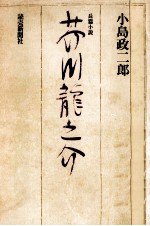 小島政二郎
長篇小説
芥川龍之介
読売新聞社